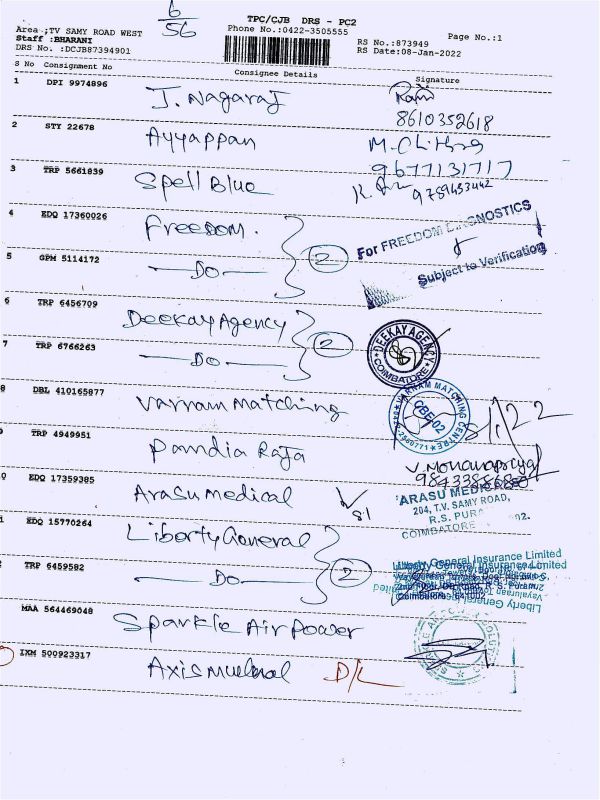 6
56
TPC/CJB DRS - PC2
Area :TV SAMY ROAD WEST
Phone No.:0422-3505555
Page No.:1
Staff :BHARANI
RS No.:873949
DRS No. :DCJB87394901
RS Date:08-Jan-2022
S No Consignment No
Consignee Details
Signature
1 DPI 9974896
J. Nagaraj
Ram
8610352618
2 STY 22678
Ayyappan
M. Chithra
9677131717
3 TRP 5661839
Spell Blue
9789453442
4 EDQ 17360026
Freedom.
2
For FREEDOM DIAGNOSTICS
5 GPM 5114172
Do
Subject to Verification
6 TRP 6456709
Deekay Agency
2
DEEKAY AGENCY
COIMBATORE
7 TRP 6766263
Do
8 DBL 410165877
Varnam Matching
VARNAM MATCHING CENTRE
CBE-02
8/1/22
TRP 4949951
Pandia Raja
0 EDQ 17359385
Arasu medical
8.1
ARASU MEDICAL
204, T.V. SAMY ROAD,
R.S. PURAM
COIMBATORE
1 EDQ 15770264
Liberty General
2
Liberty General Insurance Limited
2 TRP 6459582
Do
MAA 564469048
Sparkle Air Power
IXM 500923317
Axis mutual
D/L